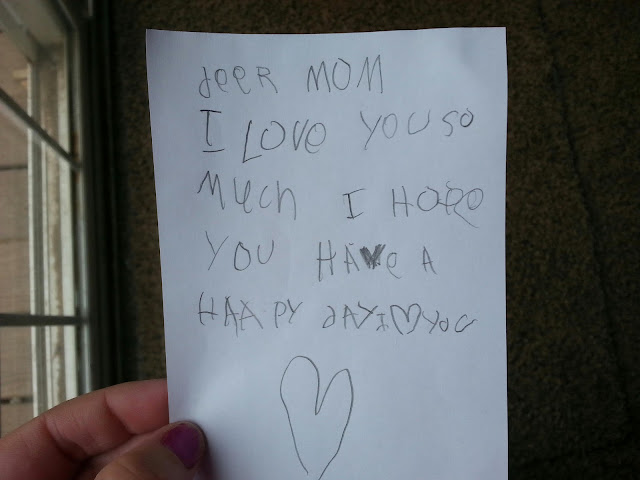 deer MOM
I LOVe YOU SO
Much I HOPE
YOU HAVe A
HAAPY dAY I ♡ YOU